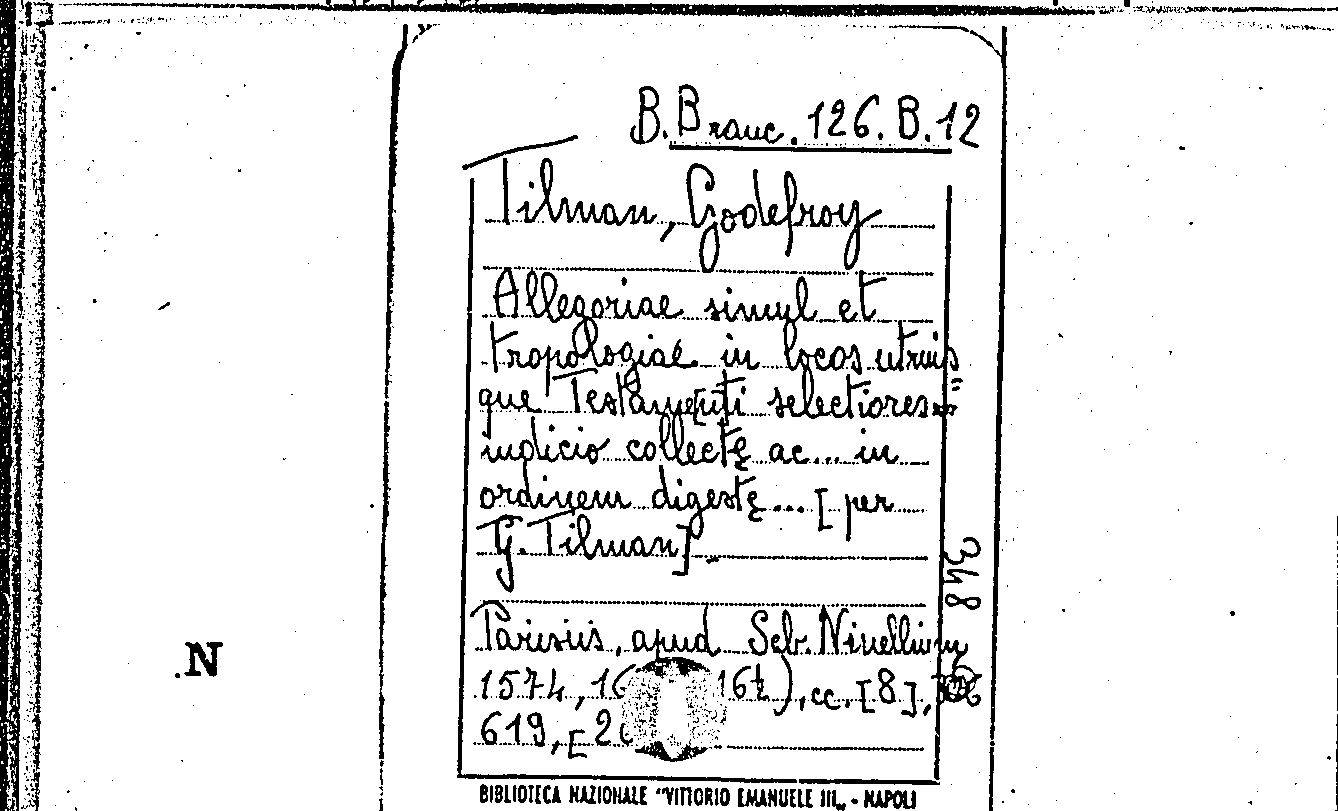 B. Branc. 126. B. 12
Tilman, Godefroy
Allegoriae simul et
tropologiae in locos utrius
que Testamenti selectiores
iudicio collectę ac... in
ordinem digestę... [per
G. Tilman].
348
Parisiis, apud Seb. Nivellium
1574, 16 16½), cc. [8],
619, [2
.N
BIBLIOTECA NAZIONALE "VITTORIO EMANUELE III„ - NAPOLI